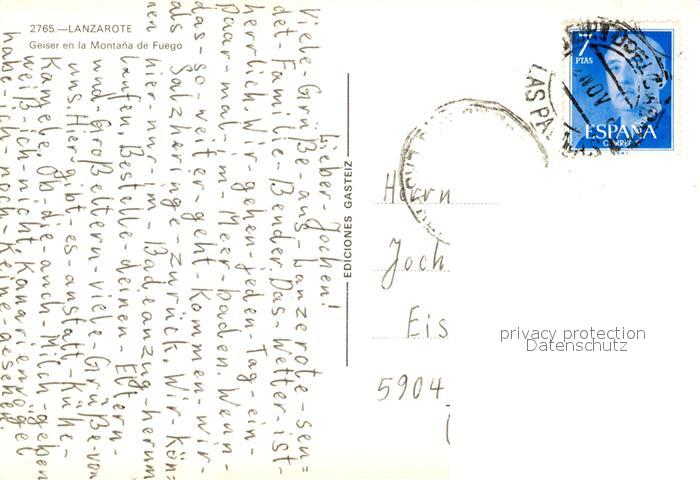 2765.—LANZAROTE
Geiser en la Montaña de Fuego
Lieber Jochen!
Viele-Grüße-aus-Lanzerote-sen=
det-Familie-Bender. Das-Wetter-ist-
herrlich. Wir-gehen-jeden-Tag-ein-
paar-mal-im-Meer-baden. Wenn-
das-so-weiter-geht-kommen-wir-
als Salzheringe-zurück. Wir-kön=
nen hier-nur-im-Badeanzug-herum
laufen. Bestelle-deinen-Eltern-
und-Großeltern-viele-Grüße-von
uns. Hier-gibt-es-anstatt-Kühe-
Kamele. Ob-die-auch-Milch-geben
weiß-ich-nicht. Kanarienvögel
habe-ich-noch-keine-gesehen.
EDICIONES GASTEIZ
7
PTAS
ESPAÑA
CORREOS
LAS PA
NOV
Herrn
Joch
Eis
5904
privacy protection
Datenschutz